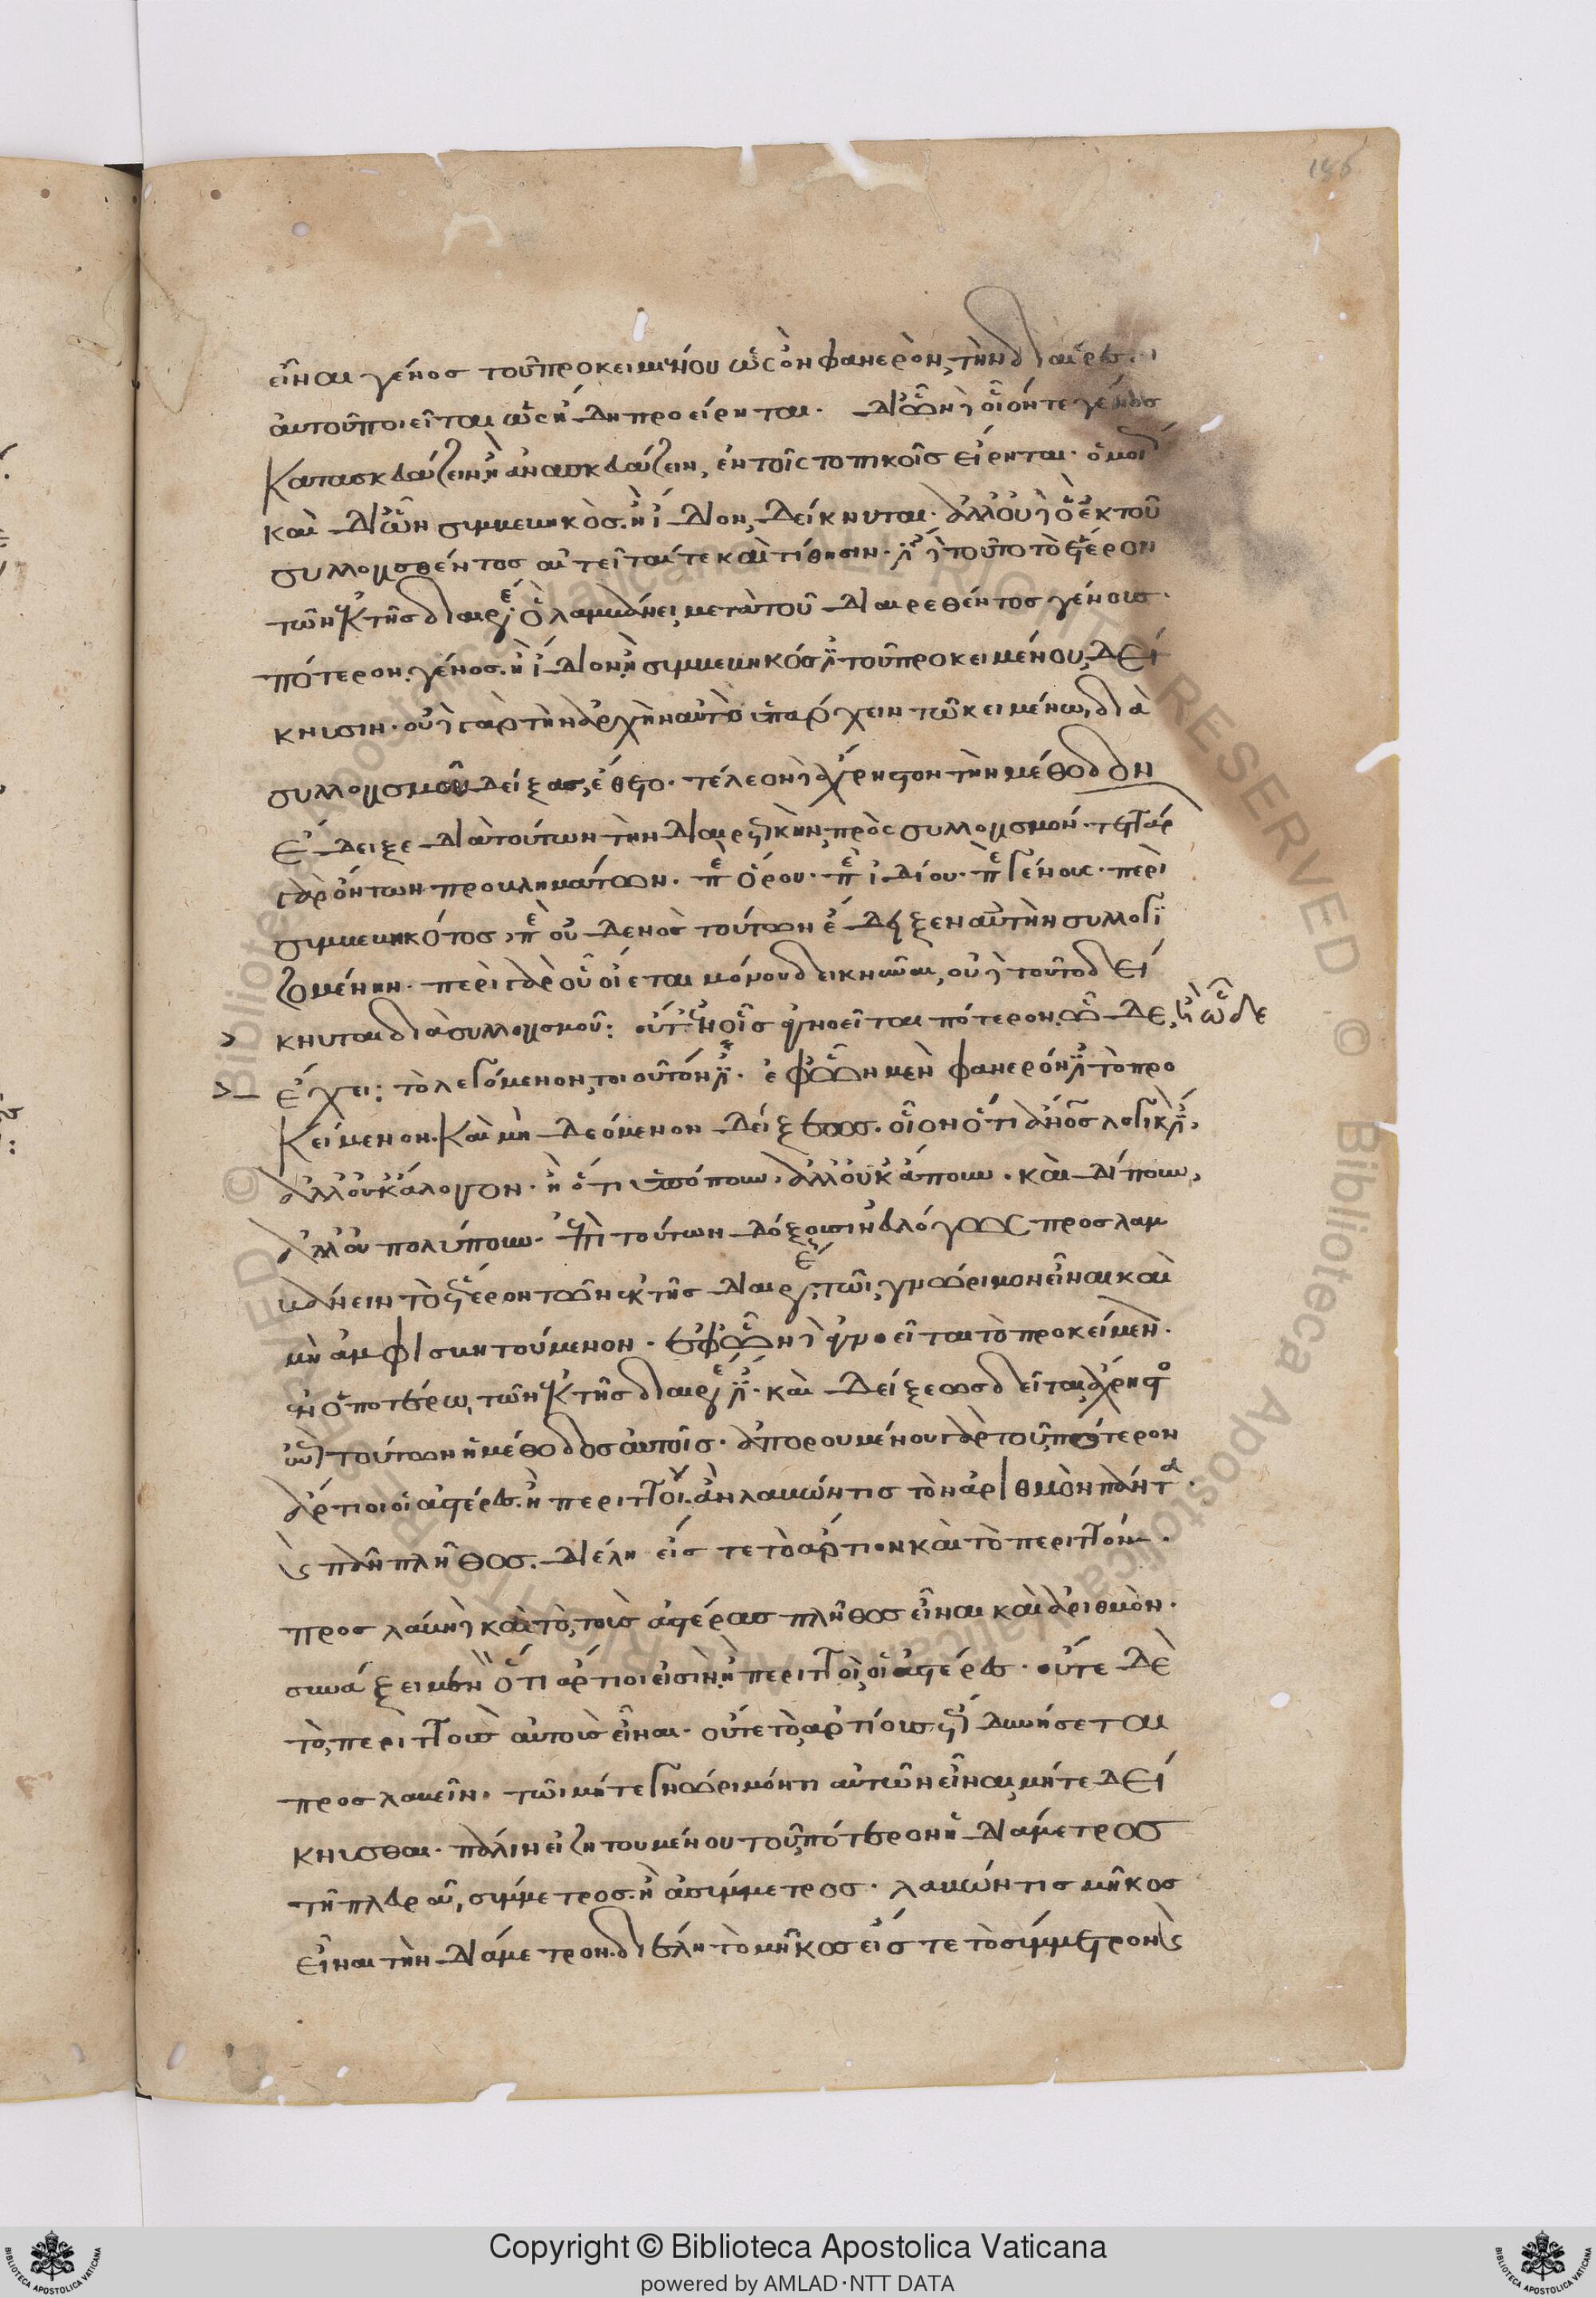 186
εἶναι γένος τοῦ προκειμένου ὡς ὂν φανερὸν, τὴν διαίρεσιν
αὐτοῦ ποιεῖται ὡς ἤδη προείρηται. δι' ὧν δὲ οἷόν τε γένος
κατασκευάζειν ἢ ἀνασκευάζειν, ἐν τοῖς τοπικοῖς εἴρηται. ὁμοί
καὶ δι' ὧν συμβεβηκὸς ἢ ἴδιον, δείκνυται. ἀλλ' οὐδὲ ὃ ἐκ τοῦ
συλλογισθέντος αἰτεῖταί τε καὶ τίθησιν. ἔστι δὲ τοῦτο τὸ ἕτερον
τῶν ἐκ τῆς διαιρέσεως ὃ λαμβάνει, μετὰ τοῦ διαιρεθέντος γένους.
πότερον γένος ἢ ἴδιον ἢ συμβεβηκός ἐστι τοῦ προκειμένου, δεί
κνυσιν. οὐδὲ γὰρ τὴν ἀρχὴν αὐτὸ ὑπάρχειν τῶ κειμένω, διὰ
συλλογισμοῦ δείξας, ἔθετο. τέλεον δὲ ἄχρηστον τὴν μέθοδον
ἔδειξε διὰ τούτων τὴν διαιρετικὴν, πρὸς συλλογισμόν. τεττάρ
γὰρ ὄντων προβλημάτων. περὶ ὅρου. περὶ ἰδίου. περὶ γένους. περὶ
συμβεβηκότος, περὶ οὐδενὸς τούτων ἔδειξεν αὐτὴν συλλογι
ζομένην. περὶ γὰρ οὗ οἴεται μόνου δεικνύναι, οὐδὲ τοῦτο δεί
κνυται διὰ συλλογισμοῦ: οὔτ' ἐν οἷς ἀγνοεῖται πότερον ὧδε ἢ ὧδε
ἔχει: τὸ λεγόμενον, τοιοῦτόν ἐστι. ἐφ' ὧν μὲν φανερόν ἐστι τὸ προ
κείμενον καὶ μὴ δεόμενον δείξεως. οἷον ὅτι ἄνθρωπος λογικόν ἐστι,
ἀλλ' οὐκ ἄλογον. ἢ ὅτι ὑπόπουν, ἀλλ' οὐκ ἄπουν. καὶ δίπουν,
ἀλλ' οὐ πολύπουν. ἐπὶ τούτων δόξουσιν εὐλόγως προσλαμ
βάνειν τὸ ἕτερον τῶν ἐκ τῆς διαιρέσεως, τῶι γνώριμον εἶναι καὶ
μὴ ἀμφισβητούμενον. ἐφ' ὧν δὲ ἀγνοεῖται τὸ προκείμενον
ἐν ὁποτέρω τῶν ἐκ τῆς διαιρέσεώς ἐστι. καὶ δείξεως δεῖται, ἄχρηστος
ἐπὶ τούτων ἡ μέθοδος αὐτοῖς. ἀπορουμένου γὰρ τοῦ πότερον
ἄρτιοι οἱ ἀστέρες ἢ περιττοὶ. ἂν λαβών τις τὸν ἀριθμὸν πάντα
καὶ πᾶν πλῆθος. διέλη εἴς τε τὸ ἄρτιον καὶ τὸ περιττόν.
προσλάβη δὲ καὶ τὸ, τοὺς ἀστέρας πλῆθος εἶναι καὶ ἀριθμὸν.
συνάξει μὲν ὅτι ἄρτιοι εἰσὶν ἢ περιττοὶ, οἱ ἀστέρες. οὔτε δὲ
τὸ, περιττοὺς αὐτοὺς εἶναι. οὔτε τὸ, ἀρτίους ἔτι δυνήσεται
προσλαβεῖν. τῶι μήτε γνώριμόν τι αὐτῶν εἶναι, μήτε δεί
κνυσθαι. πάλιν εἰ ζητουμένου τοῦ, πότερον ἡ διάμετρος
τῆ πλευρᾶ, σύμμετρος ἢ ἀσύμμετρος. λαβών τις μῆκος
εἶναι τὴν διάμετρον. διέλη τὸ μῆκος εἴς τε τὸ σύμμετρον καὶ
Copyright © Biblioteca Apostolica Vaticana
powered by AMLAD·NTT DATA